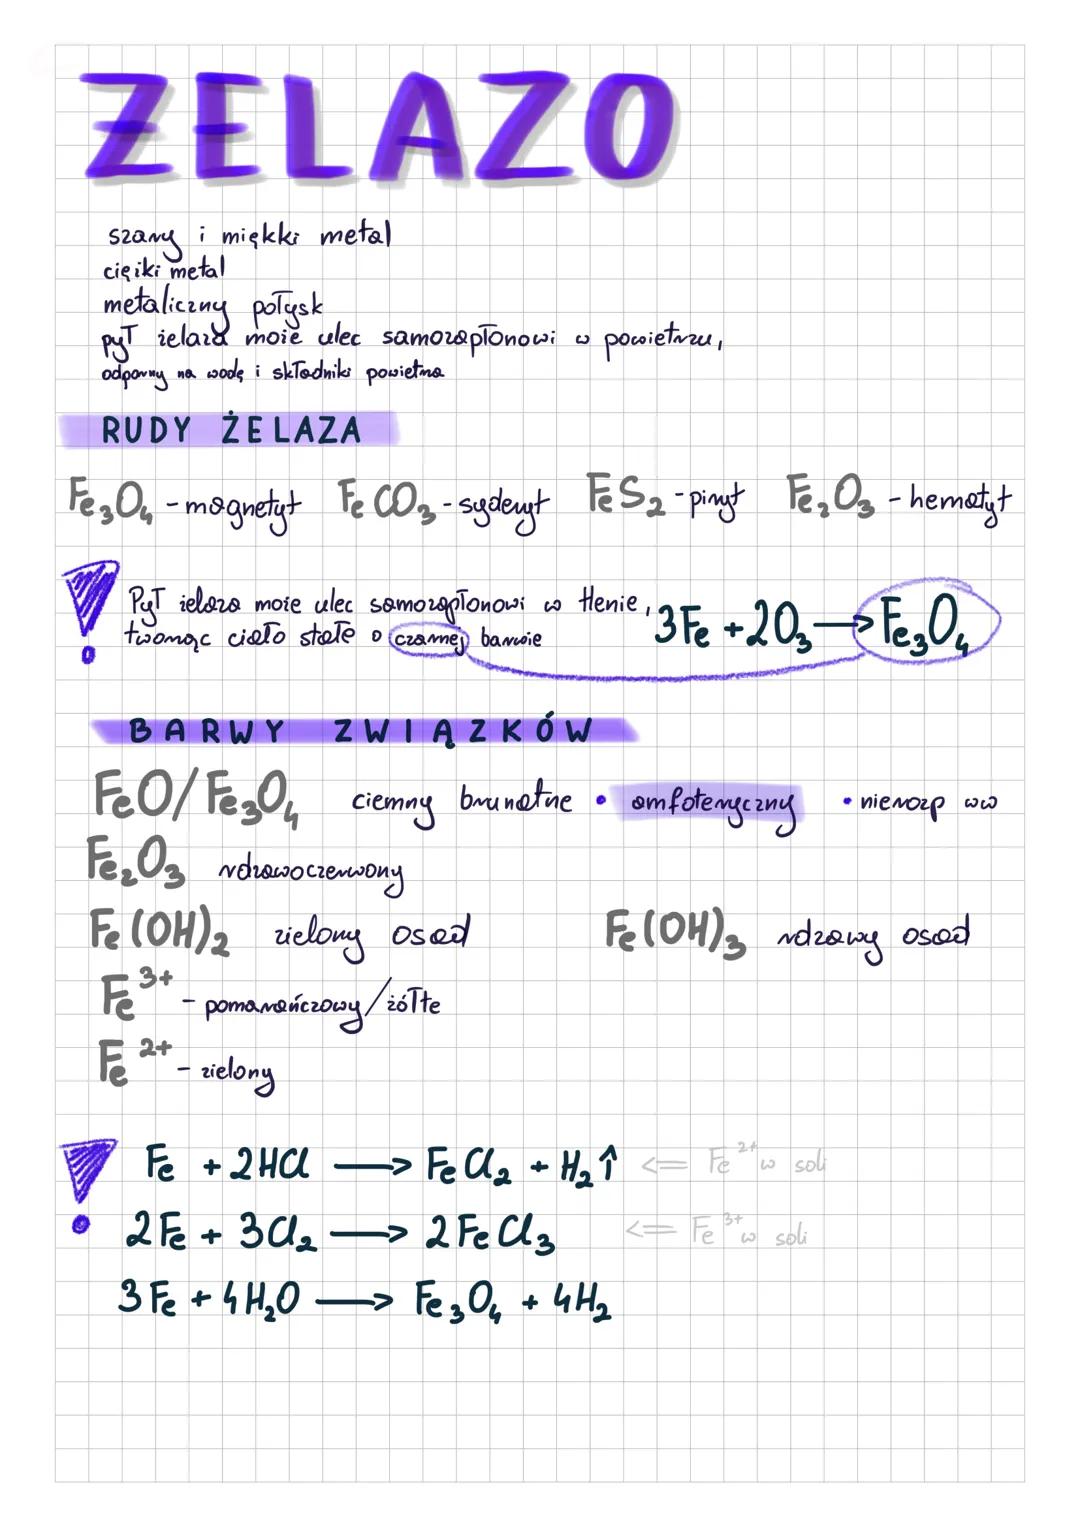 ŻELAZO
szary i miękki metal
ciężki metal
metaliczny połysk
pył żelaza może ulec samozapłonowi w powietrzu,
odporny na wodę i składniki powietrza
RUDY ŻELAZA
Fe₃O₄ - magnetyt FeCO₃ - syderyt FeS₂ - piryt Fe₂O₃ - hematyt
Pył żelaza może ulec samozapłonowi w tlenie,
tworząc ciało stałe o czarnej barwie
3Fe + 2O₃ → Fe₃O₄
BARWY ZWIĄZKÓW
FeO/Fe₃O₄ ciemny brunatne • amfoteryczny • nierozp ww
Fe₂O₃ rdzawoczerwony
Fe(OH)₂ zielony osad Fe(OH)₃ rdzawy osad
Fe³⁺ - pomarańczowy/żółte
Fe²⁺ - zielony
Fe + 2HCl → FeCl₂ + H₂↑ <= Fe²⁺ w soli
2Fe + 3Cl₂ → 2FeCl₃ <= Fe³⁺ w soli
3Fe + 4H₂O → Fe₃O₄ + 4H₂